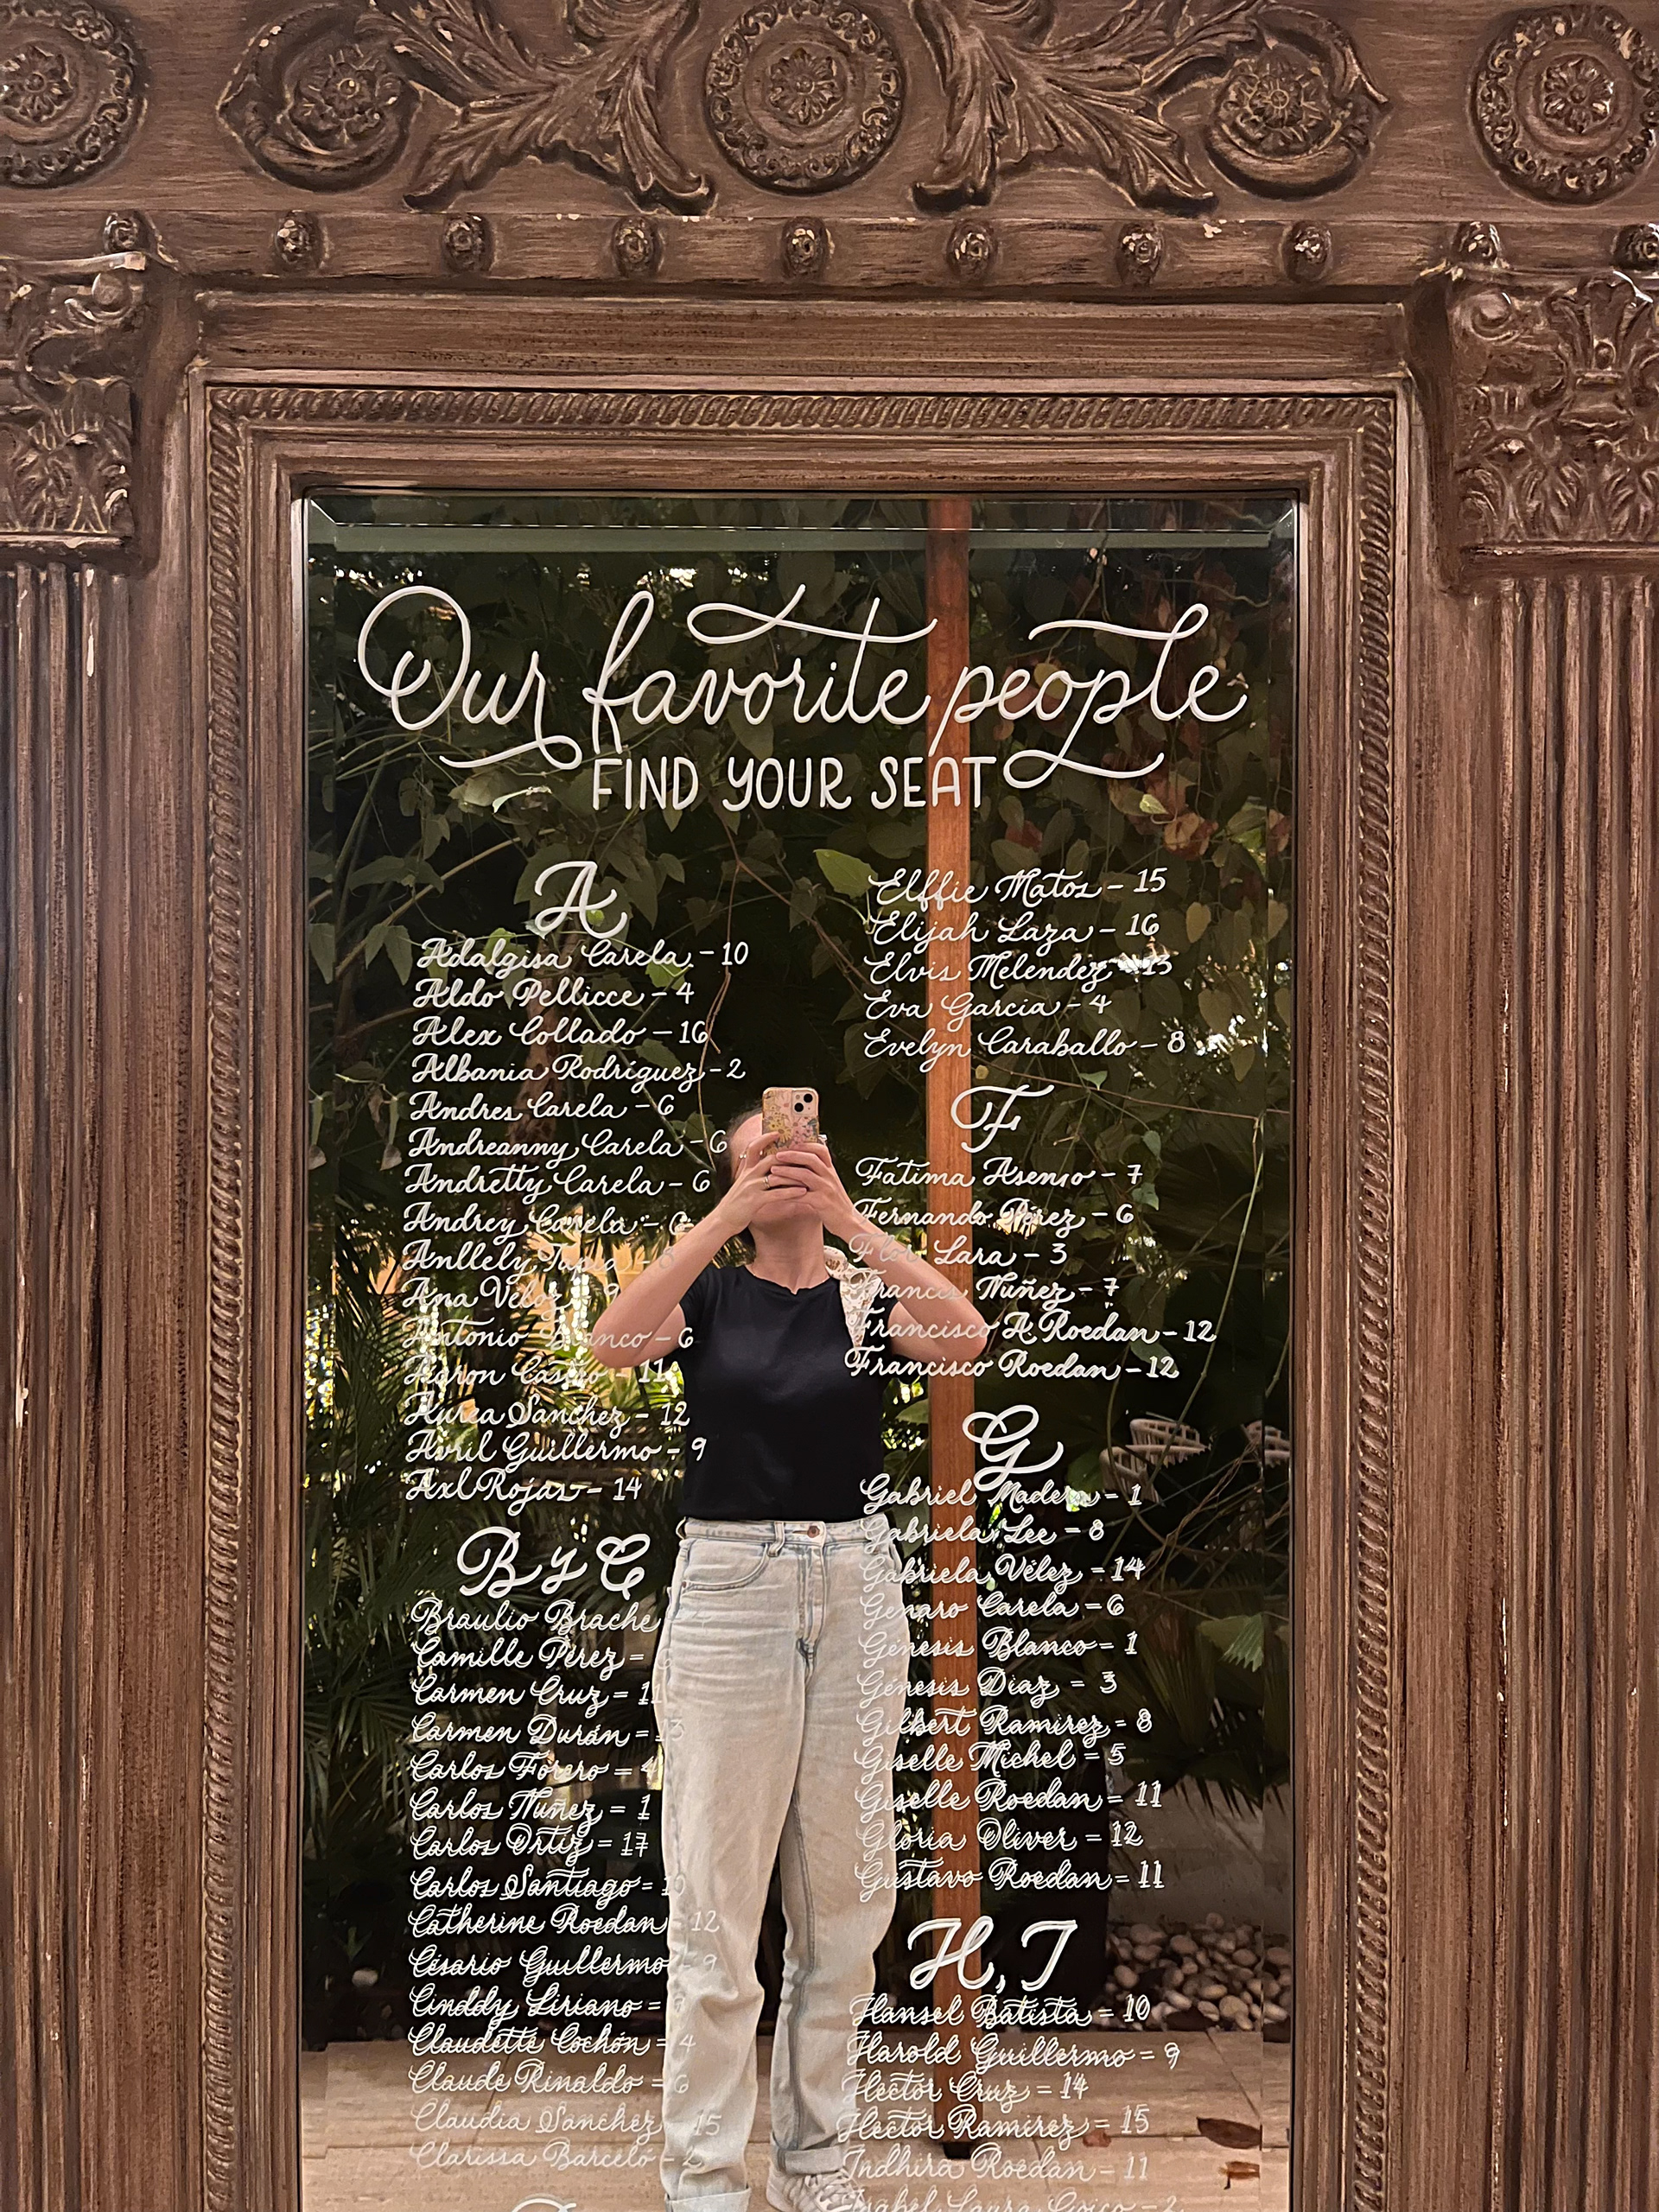 Our favorite people
FIND YOUR SEAT
A
Adalgisa Carela - 10
Aldo Pellicce - 4
Alex Collado - 16
Albania Rodríguez - 2
Andres Carela - 6
Andreanny Carela - 6
Andretty Carela - 6
Andrey Carela - 6
Anllely Tapia - 8
Ana Veloz - 9
Antonio Blanco - 6
Aaron Castro - 11
Aurea Sanchez - 12
Avril Guillermo - 9
Axl Rojas - 14
B y C
Braulio Brache
Camille Pérez -
Carmen Cruz - 11
Carmen Durán - 13
Carlos Forero - 4
Carlos Nuñez - 1
Carlos Ortiz - 17
Carlos Santiago - 10
Catherine Roedan - 12
Césario Guillermo - 9
Cinddy Liriano -
Claudette Cochón - 4
Claude Rinaldo - 6
Claudia Sanchez - 15
Clarissa Barceló - 2
Elffie Matos - 15
Elijah Laza - 16
Elvis Melendez - 13
Eva Garcia - 4
Evelyn Caraballo - 8
F
Fatima Asenjo - 7
Fernando Pérez - 6
Flor Lara - 3
Frances Nuñez - 7
Francisco A. Roedan - 12
Francisco Roedan - 12
G
Gabriel Madera - 1
Gabriela Lee - 8
Gabriela Vélez - 14
Genaro Carela - 6
Génesis Blanco - 1
Génesis Diaz - 3
Gilbert Ramirez - 8
Giselle Michel - 5
Giselle Roedan - 11
Gloria Oliver - 12
Gustavo Roedan - 11
H, I
Hansel Batista - 10
Harold Guillermo - 9
Hector Cruz - 14
Hector Ramirez - 15
Indhira Roedan - 11
Isabel Laura - 2